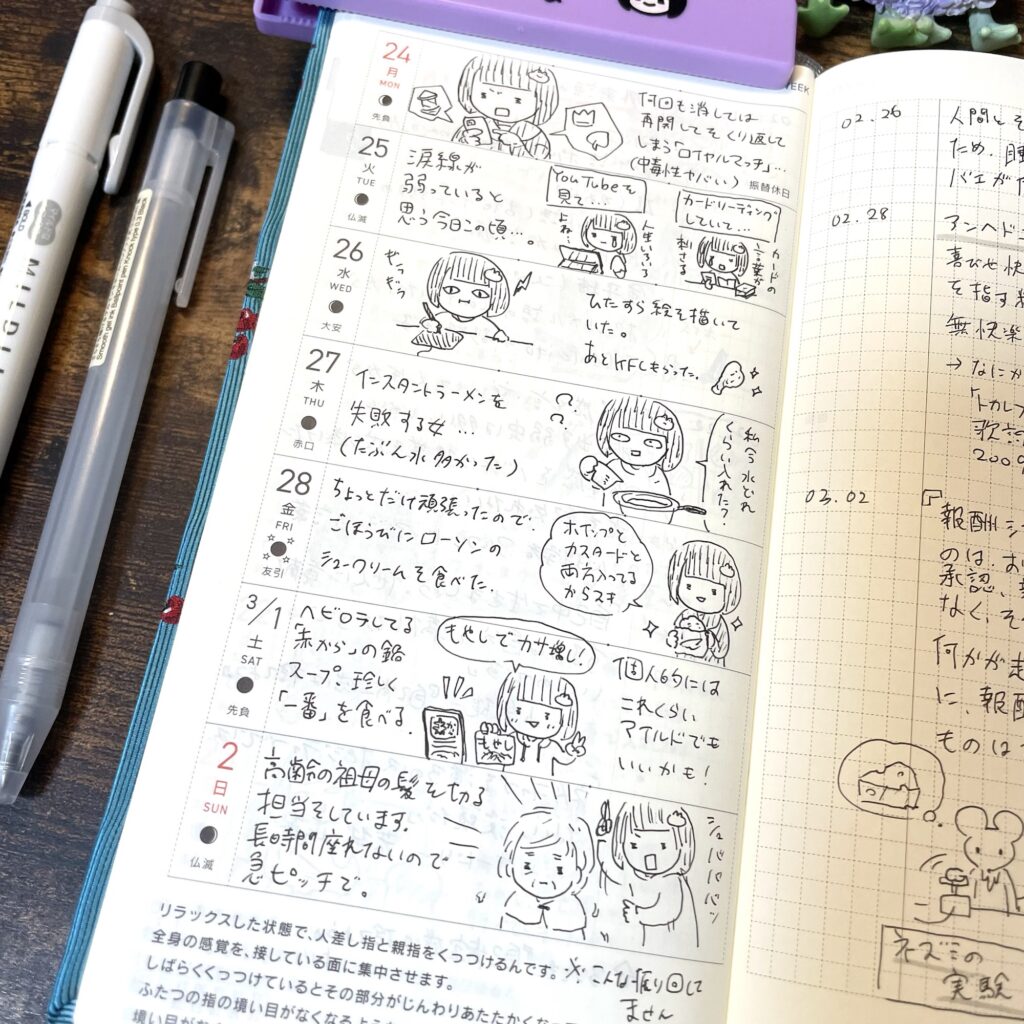 24
月
MON
先負
何回も消しては
再開してをくり返して
しまう「ロイヤルマッチ」…
(中毒性ヤバい)
振替休日
WEEK
25
火
TUE
仏滅
涙線が
弱っていると
思う今日この頃…。
YouTubeを
見て…
人生いろいろ
よね…
カードリーディング
していて…
カードの
言葉が
刺さる
26
水
WED
大安
ひたすら絵を描いて
いた。
あとKFCもらった。
27
木
THU
赤口
インスタントラーメンを
失敗する女…
(たぶん水多かった)
?
?
私今水どれ
くらい入れた?
28
金
FRI
友引
ちょっとだけ頑張ったので、
ごほうびにローソンの
シュークリームを食べた。
ホイップと
カスタードと
両方入ってる
からスキ
3/1
土
SAT
先負
ヘビロテしてる
「赤から」の鍋
スープ、珍しく
「一番」を食べる。
もやしでカサ増し!
もやし
個人的には
これくらい
マイルドでも
いいかも!
2
日
SUN
仏滅
高齢の祖母の髪を切る
担当をしています。
長時間座れないので
急ピッチで。
シュバババババッ
※こんな振り回して
ません
リラックスした状態で、人差し指と親指をくっつけるんです。
全身の感覚を、接している面に集中させます。
しばらくくっつけているとその部分がじんわりあたたかくなっ
ふたつの指の境い目がなくなるよう
境い目がな
02.26
人間と
ため、
02.28
アンヘド
喜びや快
を指す
無快楽
→なにか
200
03.02
報酬シ
のは、お
承認、
なく、そ
何かが
に、報酬
ものは
ネズミの
実験
MILDLI